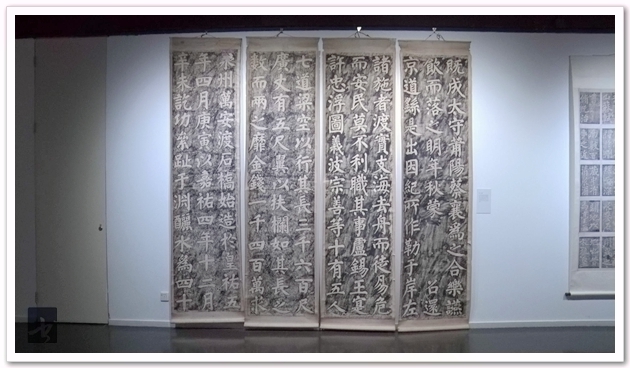 泉州萬安渡石橋始造於皇祐五
年四月庚寅以嘉祐四年十二月
辛未訖功絫趾于淵釃水為四十
七道梁空以行其長三千六百尺
廣丈有五尺翼以扶欄如其長之
數而兩之靡金錢一千四百萬求
諸施者渡實支海去舟而徙易危
而安民莫不利職其事盧錫王寔
許忠浮圖義波宗善等十有五人
既成大守莆陽蔡襄為之合樂讌
飲而落之明年秋蒙 召還
京道繇是出因紀所作勒于岸左